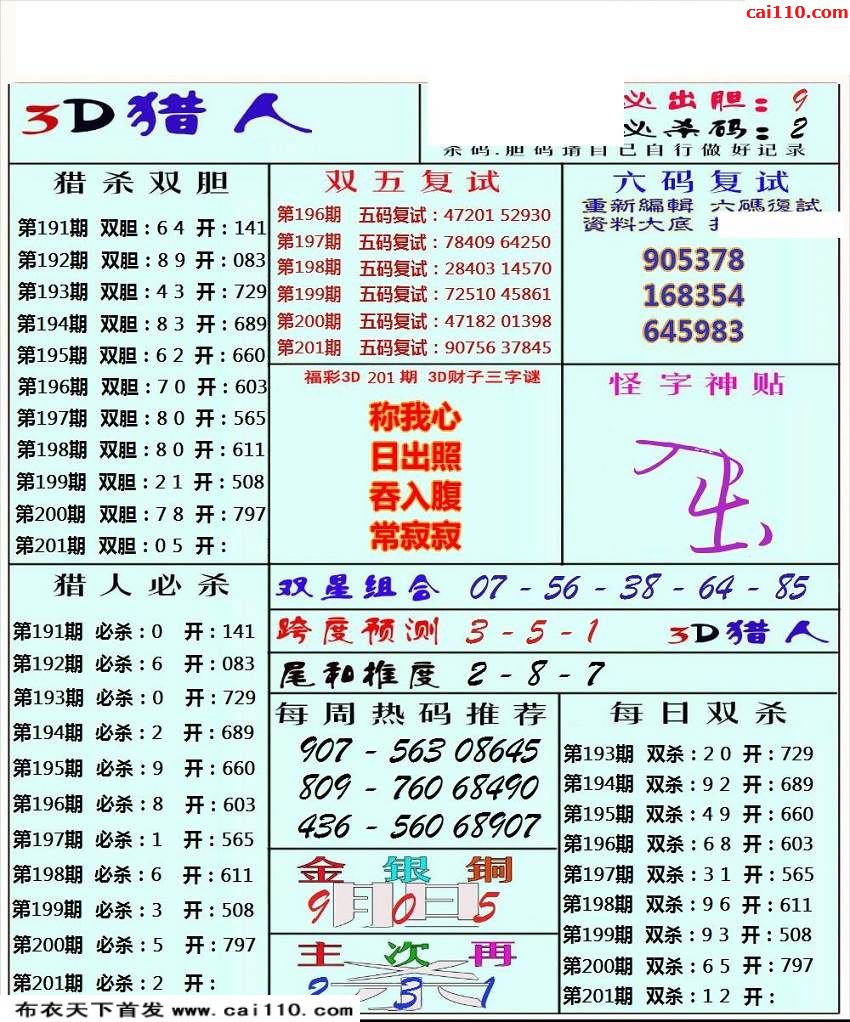 cai110.com
3D猎人
必出胆: 9
必杀码: 2
杀码.胆码请自己自行做好记录
猎杀双胆
第191期 双胆:64 开:141
第192期 双胆:89 开:083
第193期 双胆:43 开:729
第194期 双胆:83 开:689
第195期 双胆:62 开:660
第196期 双胆:70 开:603
第197期 双胆:80 开:565
第198期 双胆:80 开:611
第199期 双胆:21 开:508
第200期 双胆:78 开:797
第201期 双胆:05 开:
双五复试
第196期 五码复试:47201 52930
第197期 五码复试:78409 64250
第198期 五码复试:28403 14570
第199期 五码复试:72510 45861
第200期 五码复试:47182 01398
第201期 五码复试:90756 37845
六码复试
重新編輯 六碼復試
資料大底
905378
168354
645983
福彩3D 201期 3D财子三字谜
称我心
日出照
吞入腹
常寂寂
怪字神贴
猎人必杀
第191期 必杀:0 开:141
第192期 必杀:6 开:083
第193期 必杀:0 开:729
第194期 必杀:2 开:689
第195期 必杀:9 开:660
第196期 必杀:8 开:603
第197期 必杀:1 开:565
第198期 必杀:6 开:611
第199期 必杀:3 开:508
第200期 必杀:5 开:797
第201期 必杀:2 开:
双星组合 07-56-38-64-85
跨度预测 3-5-1 3D猎人
尾和推度 2-8-7
每周热码推荐
907-563 08645
809-760 68490
436-560 68907
金银铜
9 0 5
主次再
2 3 1
每日双杀
第193期 双杀:20 开:729
第194期 双杀:92 开:689
第195期 双杀:49 开:660
第196期 双杀:68 开:603
第197期 双杀:31 开:565
第198期 双杀:96 开:611
第199期 双杀:93 开:508
第200期 双杀:65 开:797
第201期 双杀:12 开:
布衣天下首发 www.cai110.com